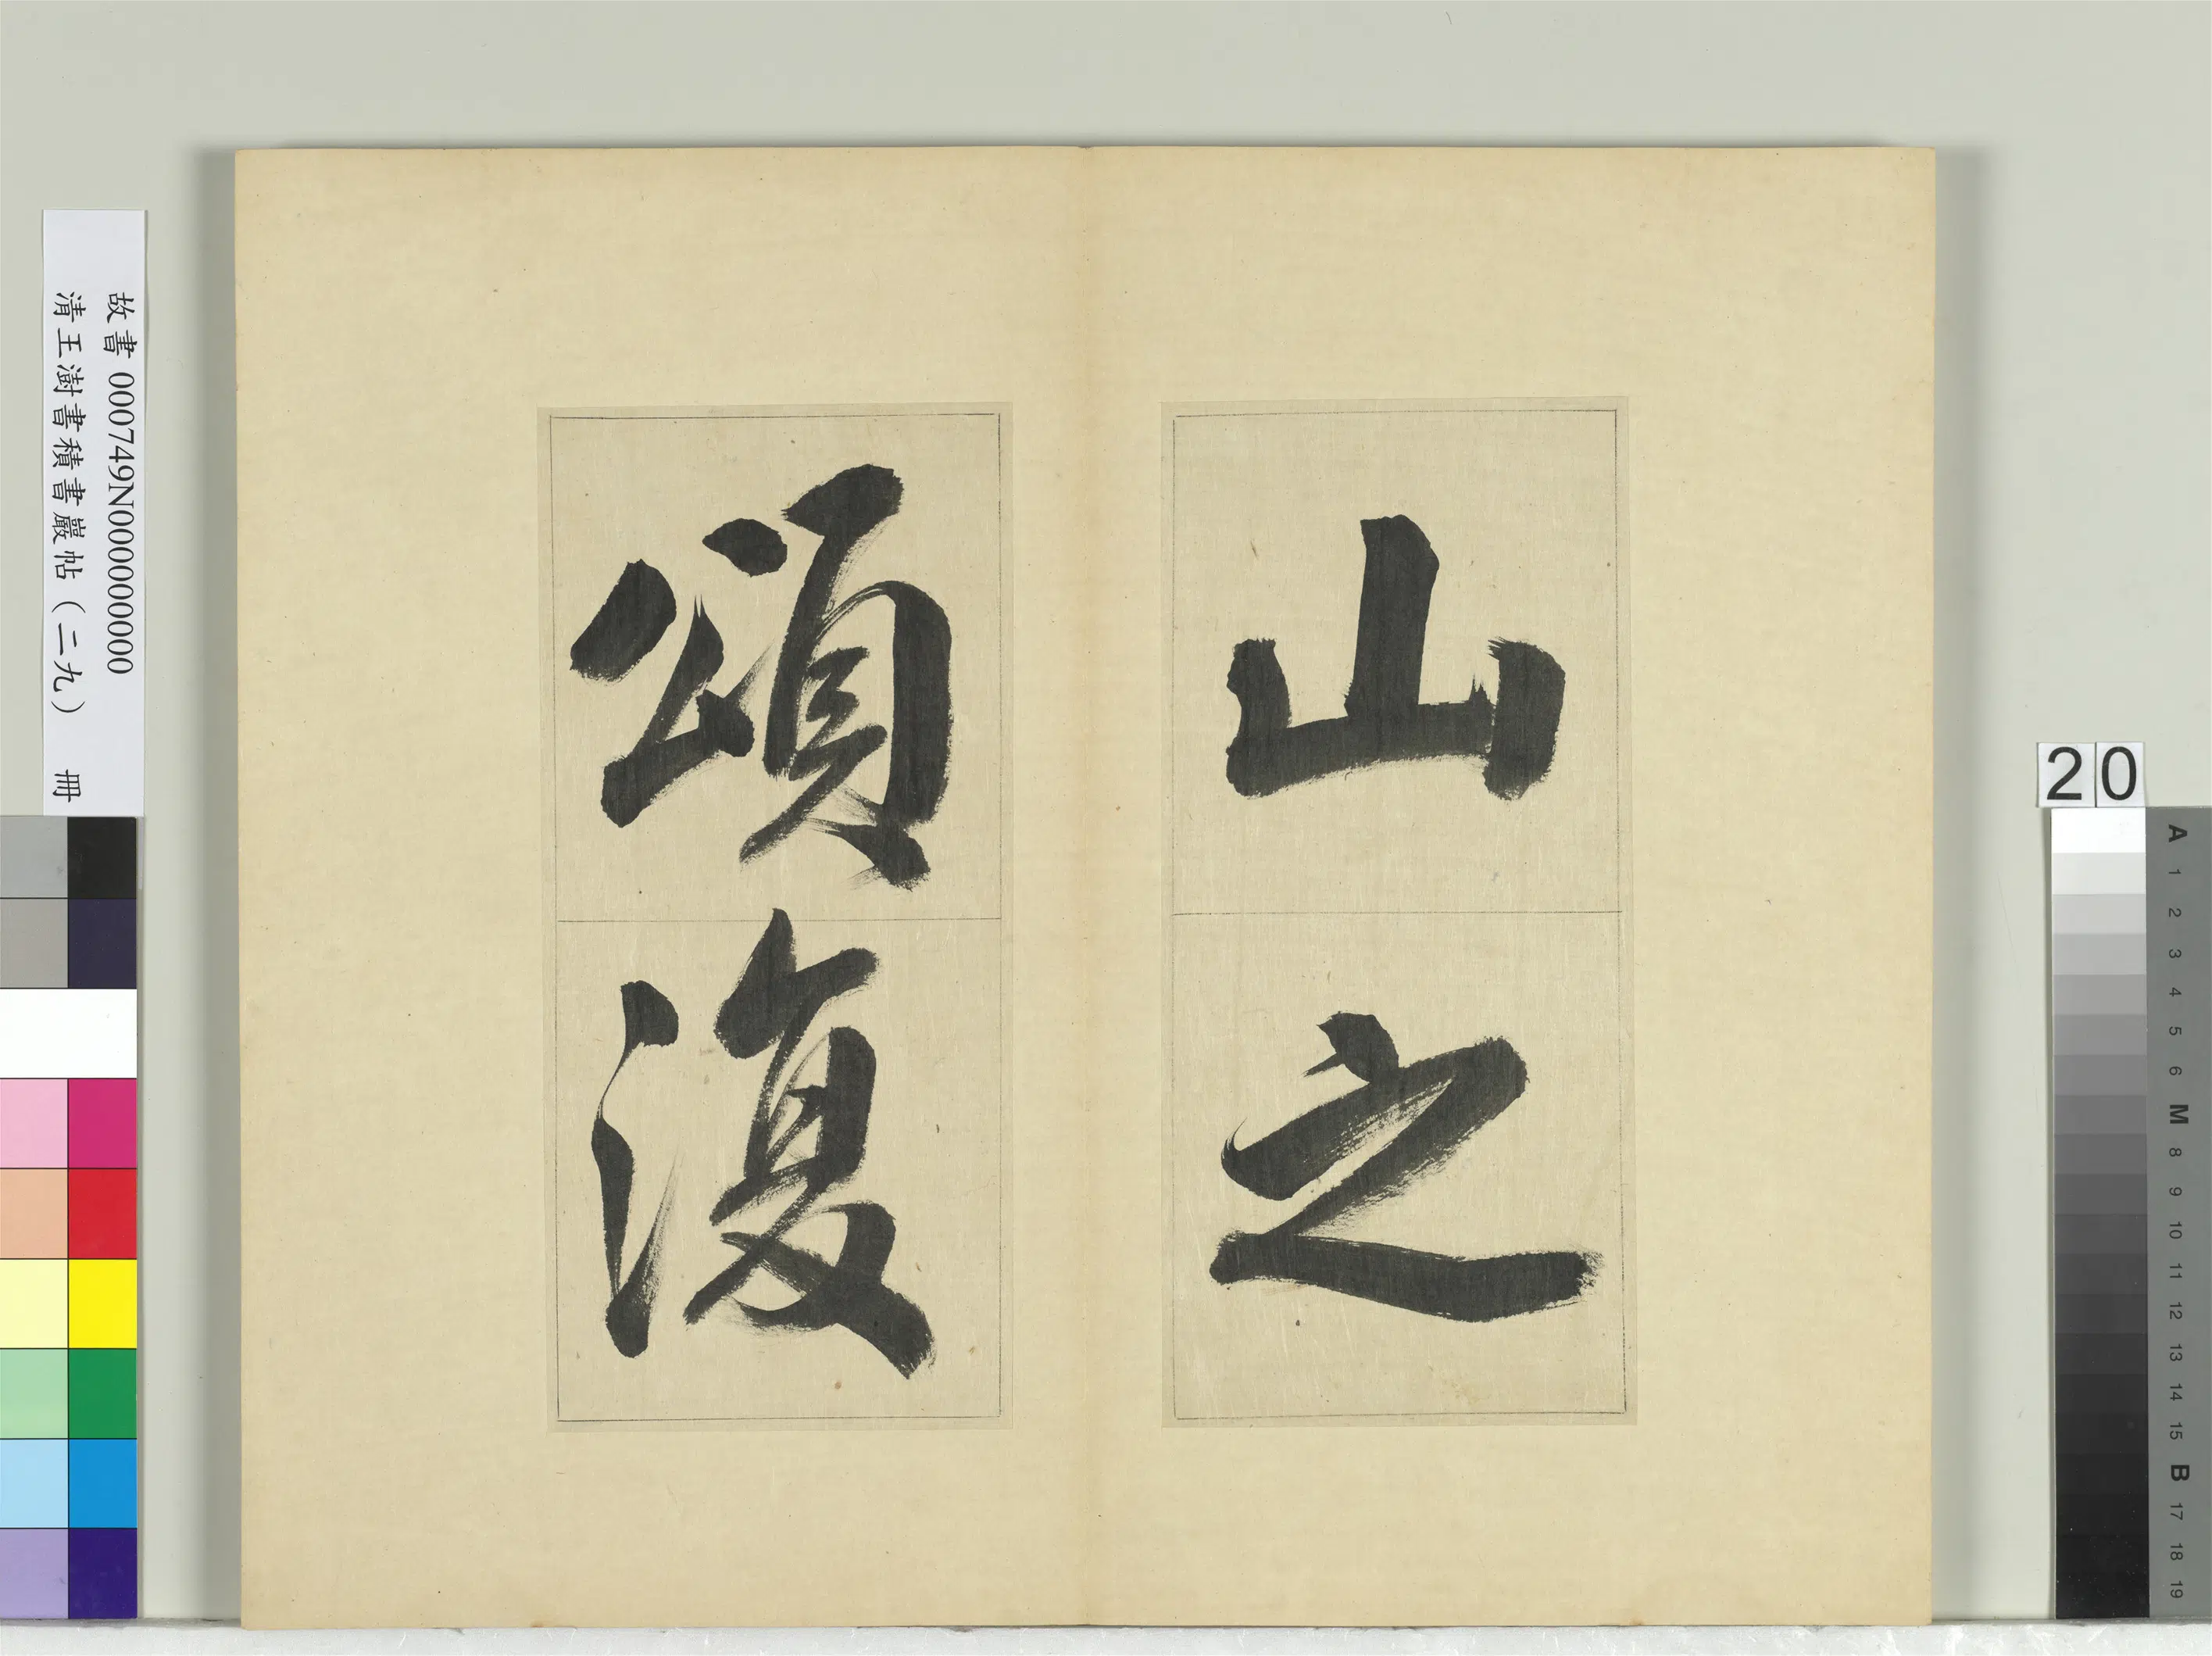 山之
頌復
故書 000749N000000000
清王澍書積書巖帖(二九) 冊
20
A
1
2
3
4
5
6
M
8
9
10
11
12
13
14
15
B
17
18
19